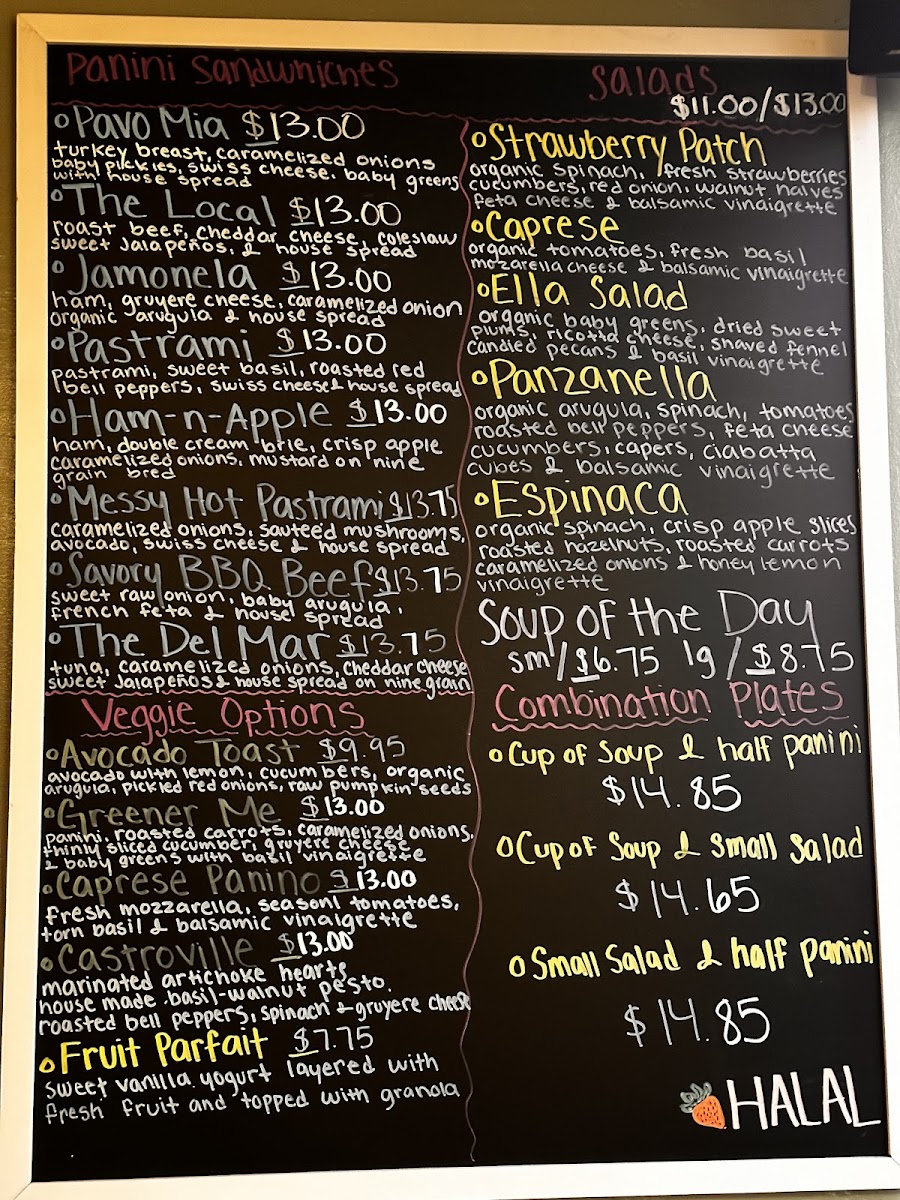 Panini Sandwhiches
oPavo Mia $13.00
turkey breast, caramelized onions
baby pickles, swiss cheese. baby greens
with house spread
oThe Local $13.00
roast beef, cheddar cheese, coleslaw
sweet Jalapeños, & house spread
oJamonela $13.00
ham, gruyere cheese, caramelized onion
organic arugula & house spread
oPastrami $13.00
pastrami, sweet basil, roasted red
bell peppers, swiss cheese & house spread
oHam-n-Apple $13.00
ham, double cream brie, crisp apple
caramelized onions, mustard on nine
grain bred
oMessy Hot Pastrami $13.75
caramelized onions, sauteed mushrooms,
avocado, swiss cheese & house spread
oSavory BBQ Beef $13.75
sweet raw onion, baby arugula,
french feta & house spread
oThe Del Mar $13.75
tuna, caramelized onions, cheddar cheese
sweet Jalapeños & house spread on nine grain
Veggie Options
oAvocado Toast $9.95
avocado with lemon, cucumbers, organic
arugula, pickled red onions, raw pumpkin seeds
oGreener Me $13.00
panini, roasted carrots, caramelized onions,
thinly sliced cucumber, gruyere cheese
& baby greens with basil vinaigrette
oCaprese Panino $13.00
fresh mozzarella, seasonl tomatoes,
torn basil & balsamic vinaigrette
oCastroville $13.00
marinated artichoke hearts
house made basil-walnut pesto,
roasted bell peppers, spinach & gruyere cheese
oFruit Parfait $7.75
sweet vanilla yogurt layered with
fresh fruit and topped with granola
Salads
$11.00/$13.00
oStrawberry Patch
organic spinach, fresh strawberries
cucumbers, red onion, walnut halves
feta cheese & balsamic vinaigrette
oCaprese
organic tomatoes, fresh basil
mozarella cheese & balsamic vinaigrette
oElla Salad
organic baby greens, dried sweet
plums, ricotta cheese, shaved fennel
candied pecans & basil vinaigrette
oPanzanella
organic arugula, spinach, tomatoes
roasted bell peppers, feta cheese
cucumbers, capers, ciabatta
cubes & balsamic vinaigrette
oEspinaca
organic spinach, crisp apple slices
roasted hazelnuts, roasted carrots
caramelized onions & honey lemon
vinaigrette
Soup of the Day
sm/$6.75 lg/$8.75
Combination Plates
oCup of Soup & half panini
$14.85
oCup of Soup & Small Salad
$14.65
oSmall Salad & half panini
$14.85
HALAL